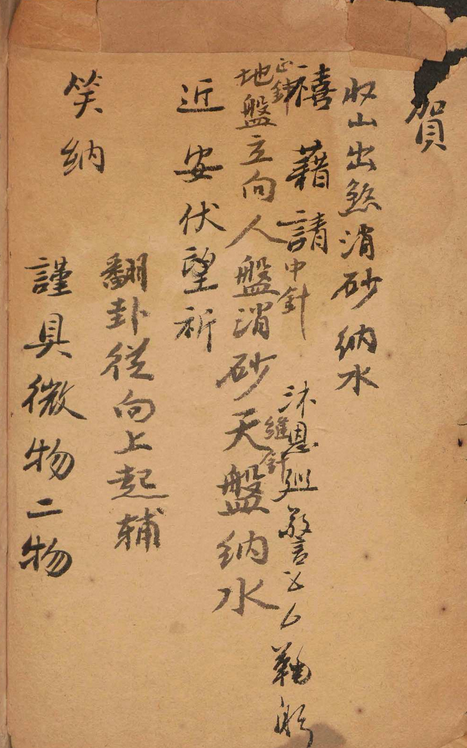 賀
收山出煞消砂纳水
禧藉請
沐恩 警 鞠躬
正針
中針
縫針
地盤立向人盤消砂天盤纳水
近安伏望祈
翻卦從向上起輔
笑纳
謹具微物二物